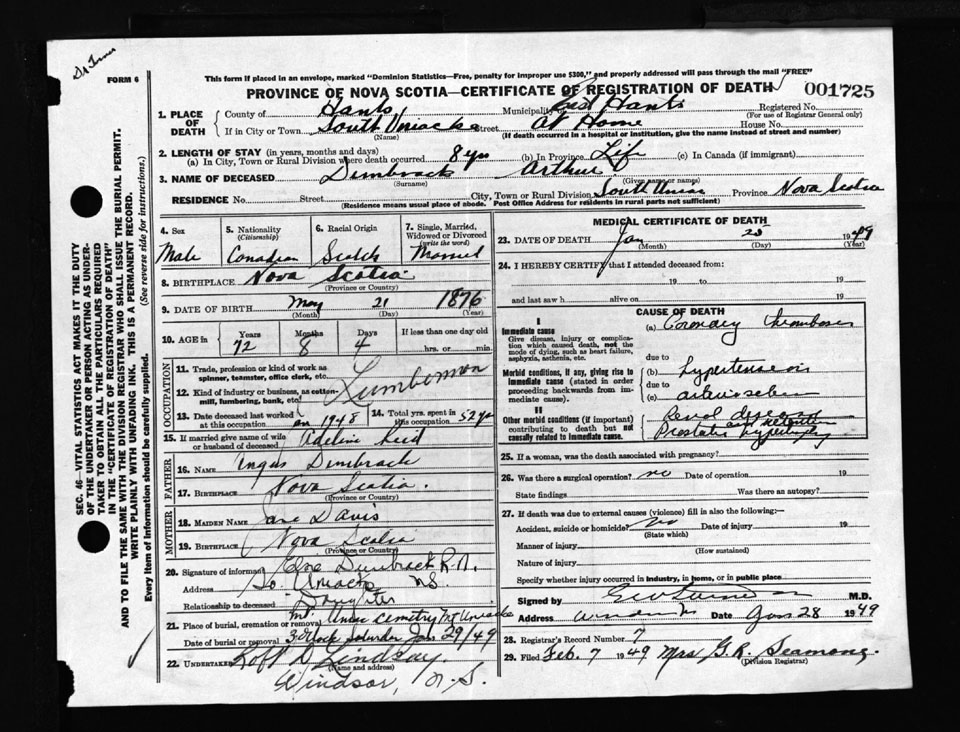 FORM 6
This form if placed in an envelope, marked "Dominion Statistics—Free, penalty for improper use $300," and properly addressed will pass through the mail "FREE"
PROVINCE OF NOVA SCOTIA—CERTIFICATE OF REGISTRATION OF DEATH 001725
1. PLACE OF DEATH County of Hants Municipality East Hants Registered No.
(For use of Registrar General only)
If in City or Town South Uniacke Street At Home House No.
(Name) (If death occurred in a hospital or institution, give the name instead of street and number)
2. LENGTH OF STAY (in years, months and days)
(a) In City, Town or Rural Division where death occurred 8 yrs (b) In Province Life (c) In Canada (if immigrant)
3. NAME OF DECEASED Dimbrack Arthur
(Surname) (Given name or name)
RESIDENCE No. Street City, Town or Rural Division South Uniac Province Nova Scotia
(Residence means usual place of abode. Post Office Address for residents in rural parts not sufficient)
4. Sex Male
5. Nationality (Citizenship) Canadian
6. Racial Origin Scotch
7. Single, Married, Widowed or Divorced (write the word) Married
8. BIRTHPLACE Nova Scotia
(Province or Country)
9. DATE OF BIRTH May 21 1876
(Month) (Day) (Year)
10. AGE in Years Months Days If less than one day old
72 8 4 hrs. or min.
OCCUPATION
11. Trade, profession or kind of work as spinner, teamster, office clerk, etc. Lumberman
12. Kind of industry or business, as cotton-mill, lumbering, bank, etc.
13. Date deceased last worked at this occupation 1948
14. Total yrs. spent in this occupation 52 yr
15. If married give name of wife or husband of deceased Adeline Reid
FATHER
16. NAME Angus Dimbrack
17. BIRTHPLACE Nova Scotia.
(Province or Country)
MOTHER
18. MAIDEN NAME Jane Davis
19. BIRTHPLACE Nova Scotia
(Province or Country)
20. Signature of informant Dimbrack R.N.
Address So. Uniacke N.S.
Relationship to deceased Daughter
21. Place of burial, cremation or removal Mt. Uniac Cemetry Mt Uniacke
Date of burial or removal 3 oclock Saturday Jan 29/49
22. UNDERTAKER D Lindsay.
(Name and address)
Windsor, N.S.
MEDICAL CERTIFICATE OF DEATH
23. DATE OF DEATH Jan 25 1949
(Month) (Day) (Year)
24. I HEREBY CERTIFY that I attended deceased from:
19 to 19
and last saw h alive on 19
CAUSE OF DEATH
I
Immediate cause
Give disease, injury or complication which caused death, not the mode of dying, such as heart failure, asphyxia, asthenia, etc.
(a) Coronary thrombosis
due to
Morbid conditions, if any, giving rise to immediate cause (stated in order proceeding backwards from immediate cause).
(b) hypertension
due to
(c)
II
Other morbid conditions (if important) contributing to death but not causally related to immediate cause.
Renal disease
Prostatic hypertrophy
25. If a woman, was the death associated with pregnancy?
26. Was there a surgical operation? no Date of operation 19
State findings Was there an autopsy?
27. If death was due to external causes (violence) fill in also the following:—
Accident, suicide or homicide? no Date of injury 19
(State which)
Manner of injury
(How sustained)
Nature of injury
Specify whether injury occurred in industry, in home, or in public place
Signed by M.D.
Address Windsor Date Jan 28 1949
28. Registrar's Record Number 7
29. Filed Feb. 7 1949 Mrs G. R. Seamone
(Division Registrar)
SEC. 46—VITAL STATISTICS ACT MAKES IT THE DUTY
OF THE UNDERTAKER OR PERSON ACTING AS UNDERTAKER TO OBTAIN ALL THE PARTICULARS REQUIRED
IN THE "CERTIFICATE OF REGISTRATION OF DEATH"
AND TO FILE THE SAME WITH THE DIVISION REGISTRAR WHO SHALL ISSUE THE BURIAL PERMIT.
WRITE PLAINLY WITH UNFADING INK. THIS IS A PERMANENT RECORD.
Every item of information should be carefully supplied. (See reverse side for instructions.)